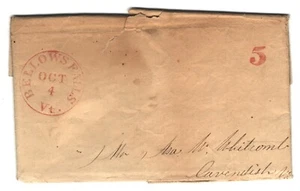 BELLOWS FALLS
OCT
4
Vt.
5
Mr Asa W. Whitcomb
Cavendish Vt